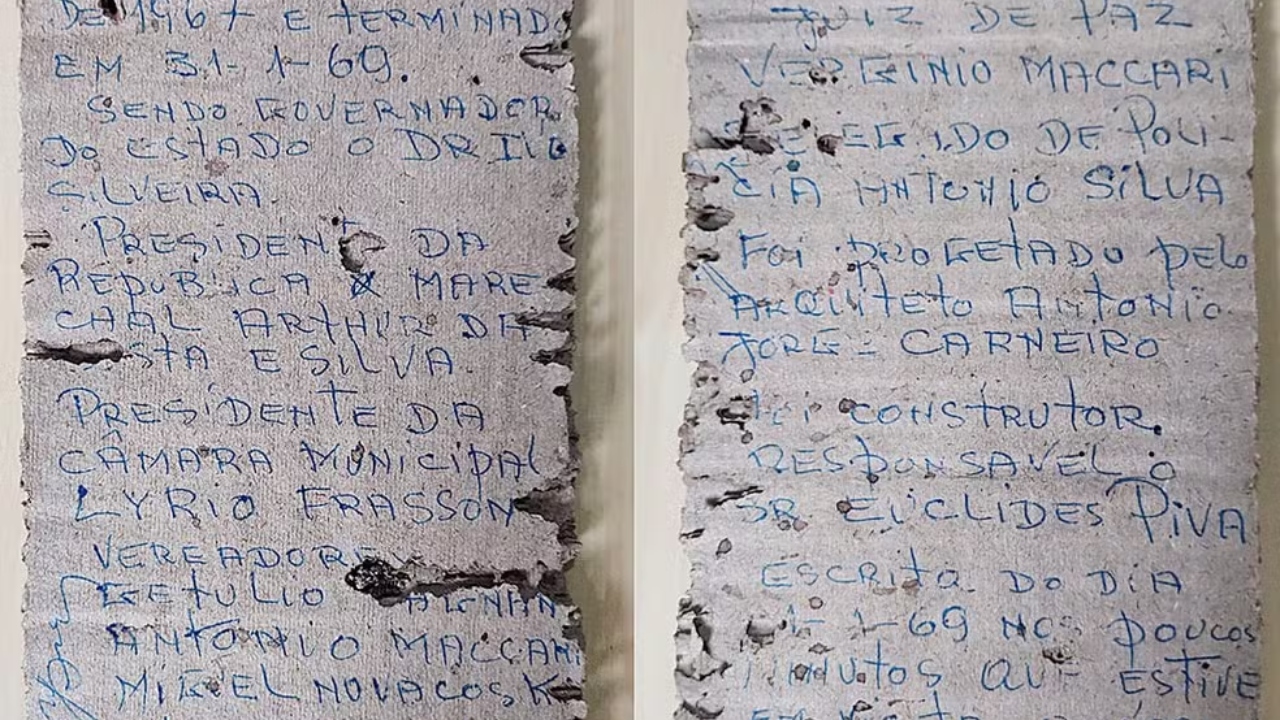 DE 1967 E TERMINAD
EM 31-1-69.
SENDO GOVERNADOR
DO ESTADO O DR IVO
SILVEIRA.
PRESIDENTE DA
REPUBLICA MARE
CHAL ARTHUR DA
STA E SILVA.
PRESIDENTE DA
CÂMARA MUNICIPAL
LYRIO FRASSON
VEREADORE
GETULIO
ANTONIO MACCARI
MIGUEL NOVACOSK
JUIZ DE PAZ
VERGINIO MACCARI
DE POLI-
CIA ANTONIO SILVA
FOI PROGETADO PELO
ARQUITETO ANTONIO
JORGE CARNEIRO
FOI CONSTRUTOR.
RESPONSAVEL O
SR EUCLIDES PIVA
ESCRITA DO DIA
1-69 NOS POUCOS
MINUTOS QUE ESTIVE
EM